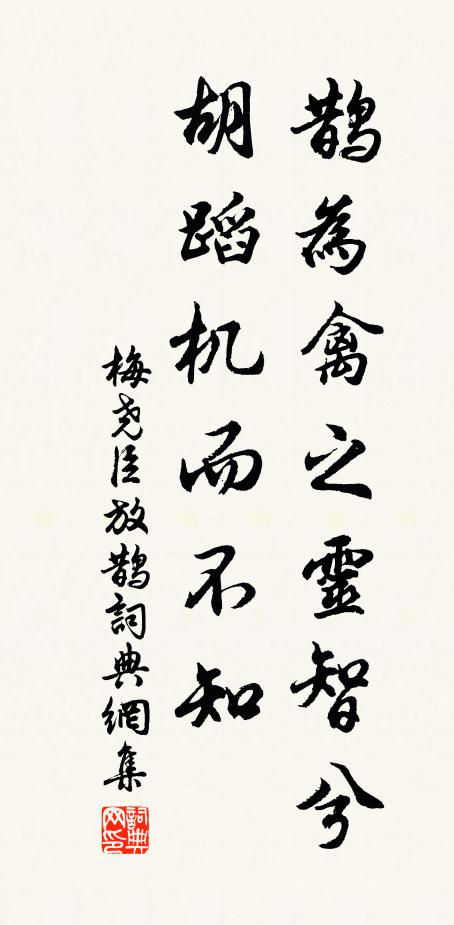 鵲為禽之靈智兮
胡蹈机而不知
梅尧臣放鵲詞典網集
詞典网印